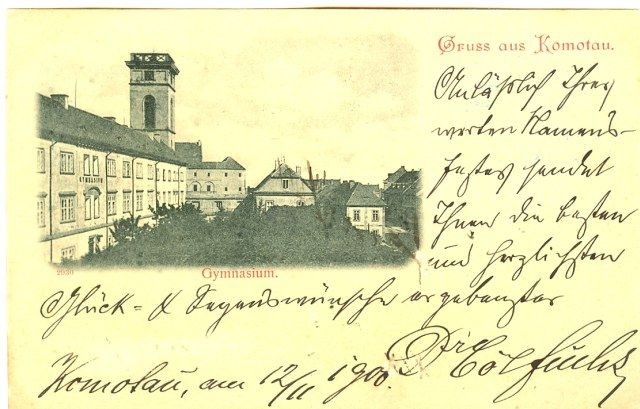 Gruss aus Komotau.
Anläßlich Ihres
werten Namens-
festes sendet
Ihnen die besten
und herzlichsten
GYMNASIUM
2930
Gymnasium.
Glück- & Segenswünsche ergebenster
Komotau, am 12/II 1900.